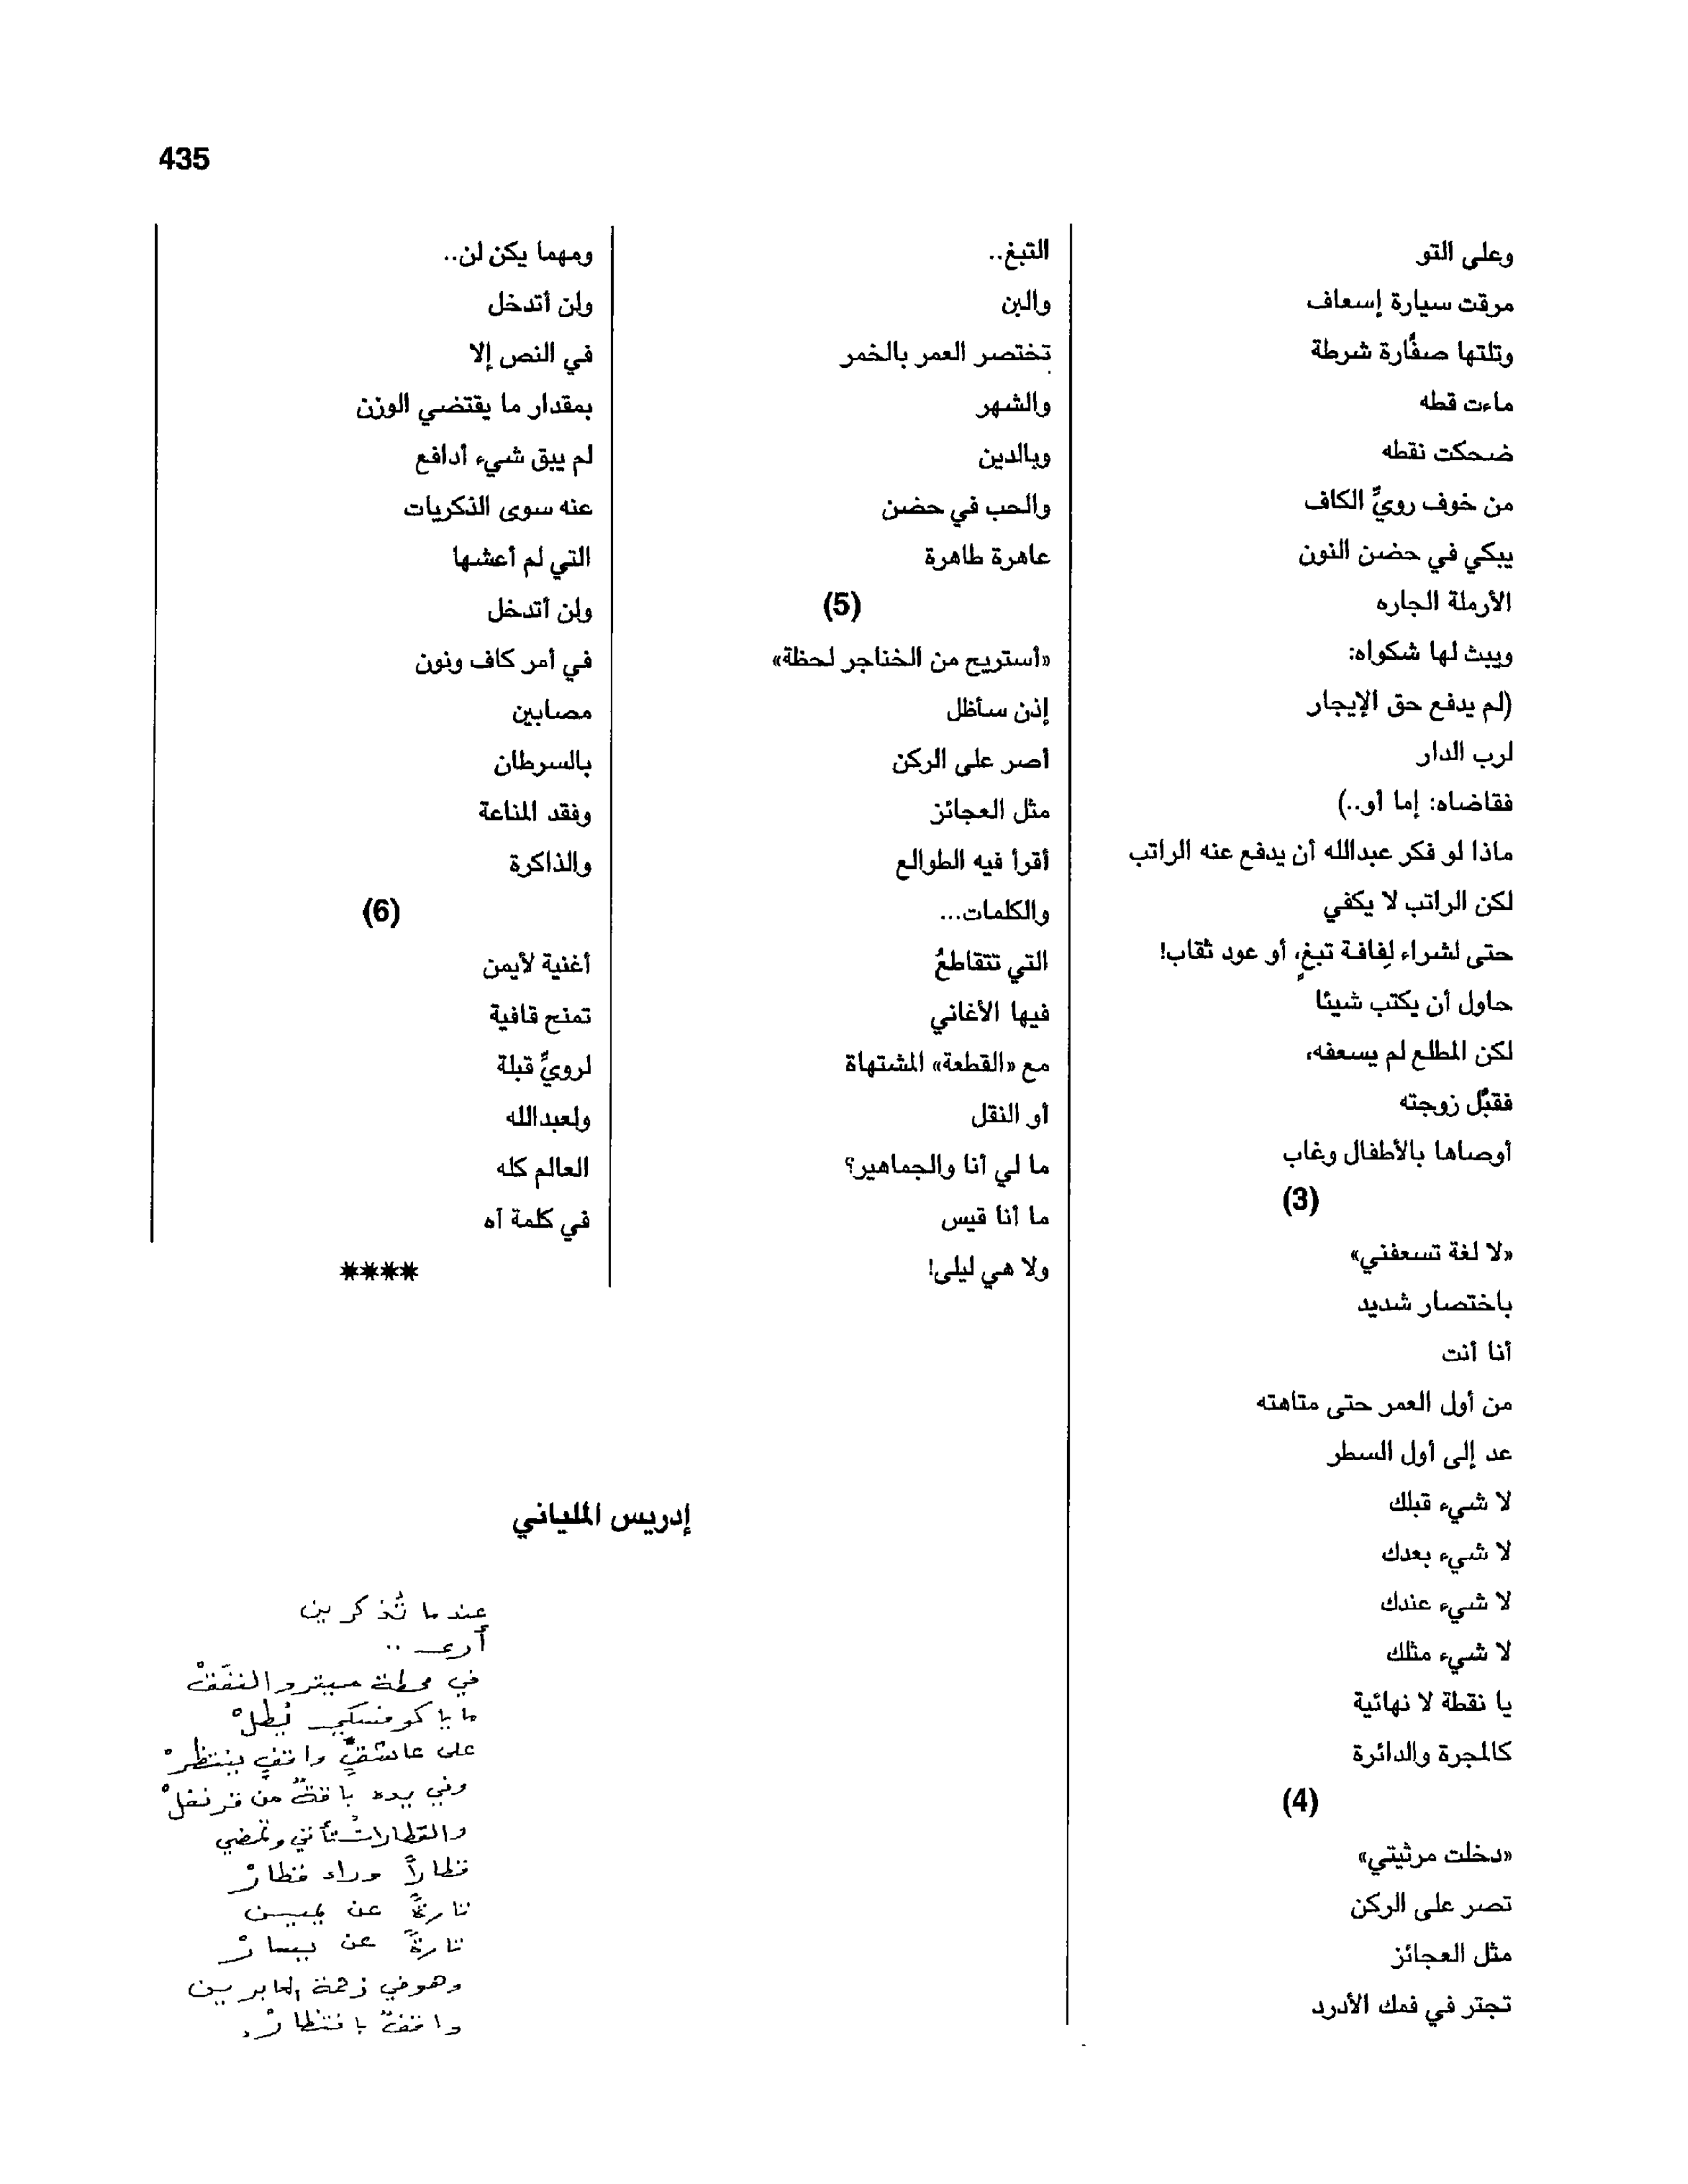 435
وعلى التو
مرقت سيارة إسعاف
وتلتها صفَّارة شرطة
ماءت قطه
ضحكت نقطه
من خوف رويِّ الكاف
يبكي في حضن النون
الأرملة الجاره
ويبث لها شكواه:
(لم يدفع حق الإيجار
لرب الدار
فقاضاه: إما أو..)
ماذا لو فكر عبدالله أن يدفع عنه الراتب
لكن الراتب لا يكفي
حتى لشراء لِفافة تبغٍ، أو عود ثقاب!
حاول أن يكتب شيئا
لكن المطلع لم يسعفه،
فقبَّل زوجته
أوصاها بالأطفال وغاب
(3)
«لا لغة تسعفني»
باختصار شديد
أنا أنت
من أول العمر حتى متاهته
عد إلى أول السطر
لا شيء قبلك
لا شيء بعدك
لا شيء عندك
لا شيء مثلك
يا نقطة لا نهائية
كالمجرة والدائرة
(4)
«دخلت مرثيتي»
تصر على الركن
مثل العجائز
تجتر في فمك الأدرد
التبغ..
والبن
تختصر العمر بالخمر
والشهر
وبالدين
والحب في حضن
عاهرة طاهرة
(5)
«أستريح من الخناجر لحظة»
إذن سأظل
أصر على الركن
مثل العجائز
أقرأ فيه الطوالع
والكلمات...
التي تتقاطعُ
فيها الأغاني
مع «القطعة» المشتهاة
أو النقل
ما لي أنا والجماهير؟
ما أنا قيس
ولا هي ليلى!
ومهما يكن لن..
ولن أتدخل
في النص إلا
بمقدار ما يقتضي الوزن
لم يبق شيء أدافع
عنه سوى الذكريات
التي لم أعشها
ولن أتدخل
في أمر كاف ونون
مصابين
بالسرطان
وفقد المناعة
والذاكرة
(6)
أغنية لأيمن
تمنح قافية
لرويِّ قبلة
ولعبدالله
العالم كله
في كلمة آه
****
إدريس الملياني
عندما تُذكرين
أرى ..
في محطة ميترو النفَقْ
ماياكوفسكي يُطلْ
على عاشقٍ واقفٍ ينتظرْ
وفي يده باقةٌ من قرنفلْ
والقطاراتُ تأتي وتمضي
قطاراً وراء قطارْ
تارةً عن يمين
تارةً عن يسارْ
وهو في زحمة العابرين
واقفٌ بانتظارْ.